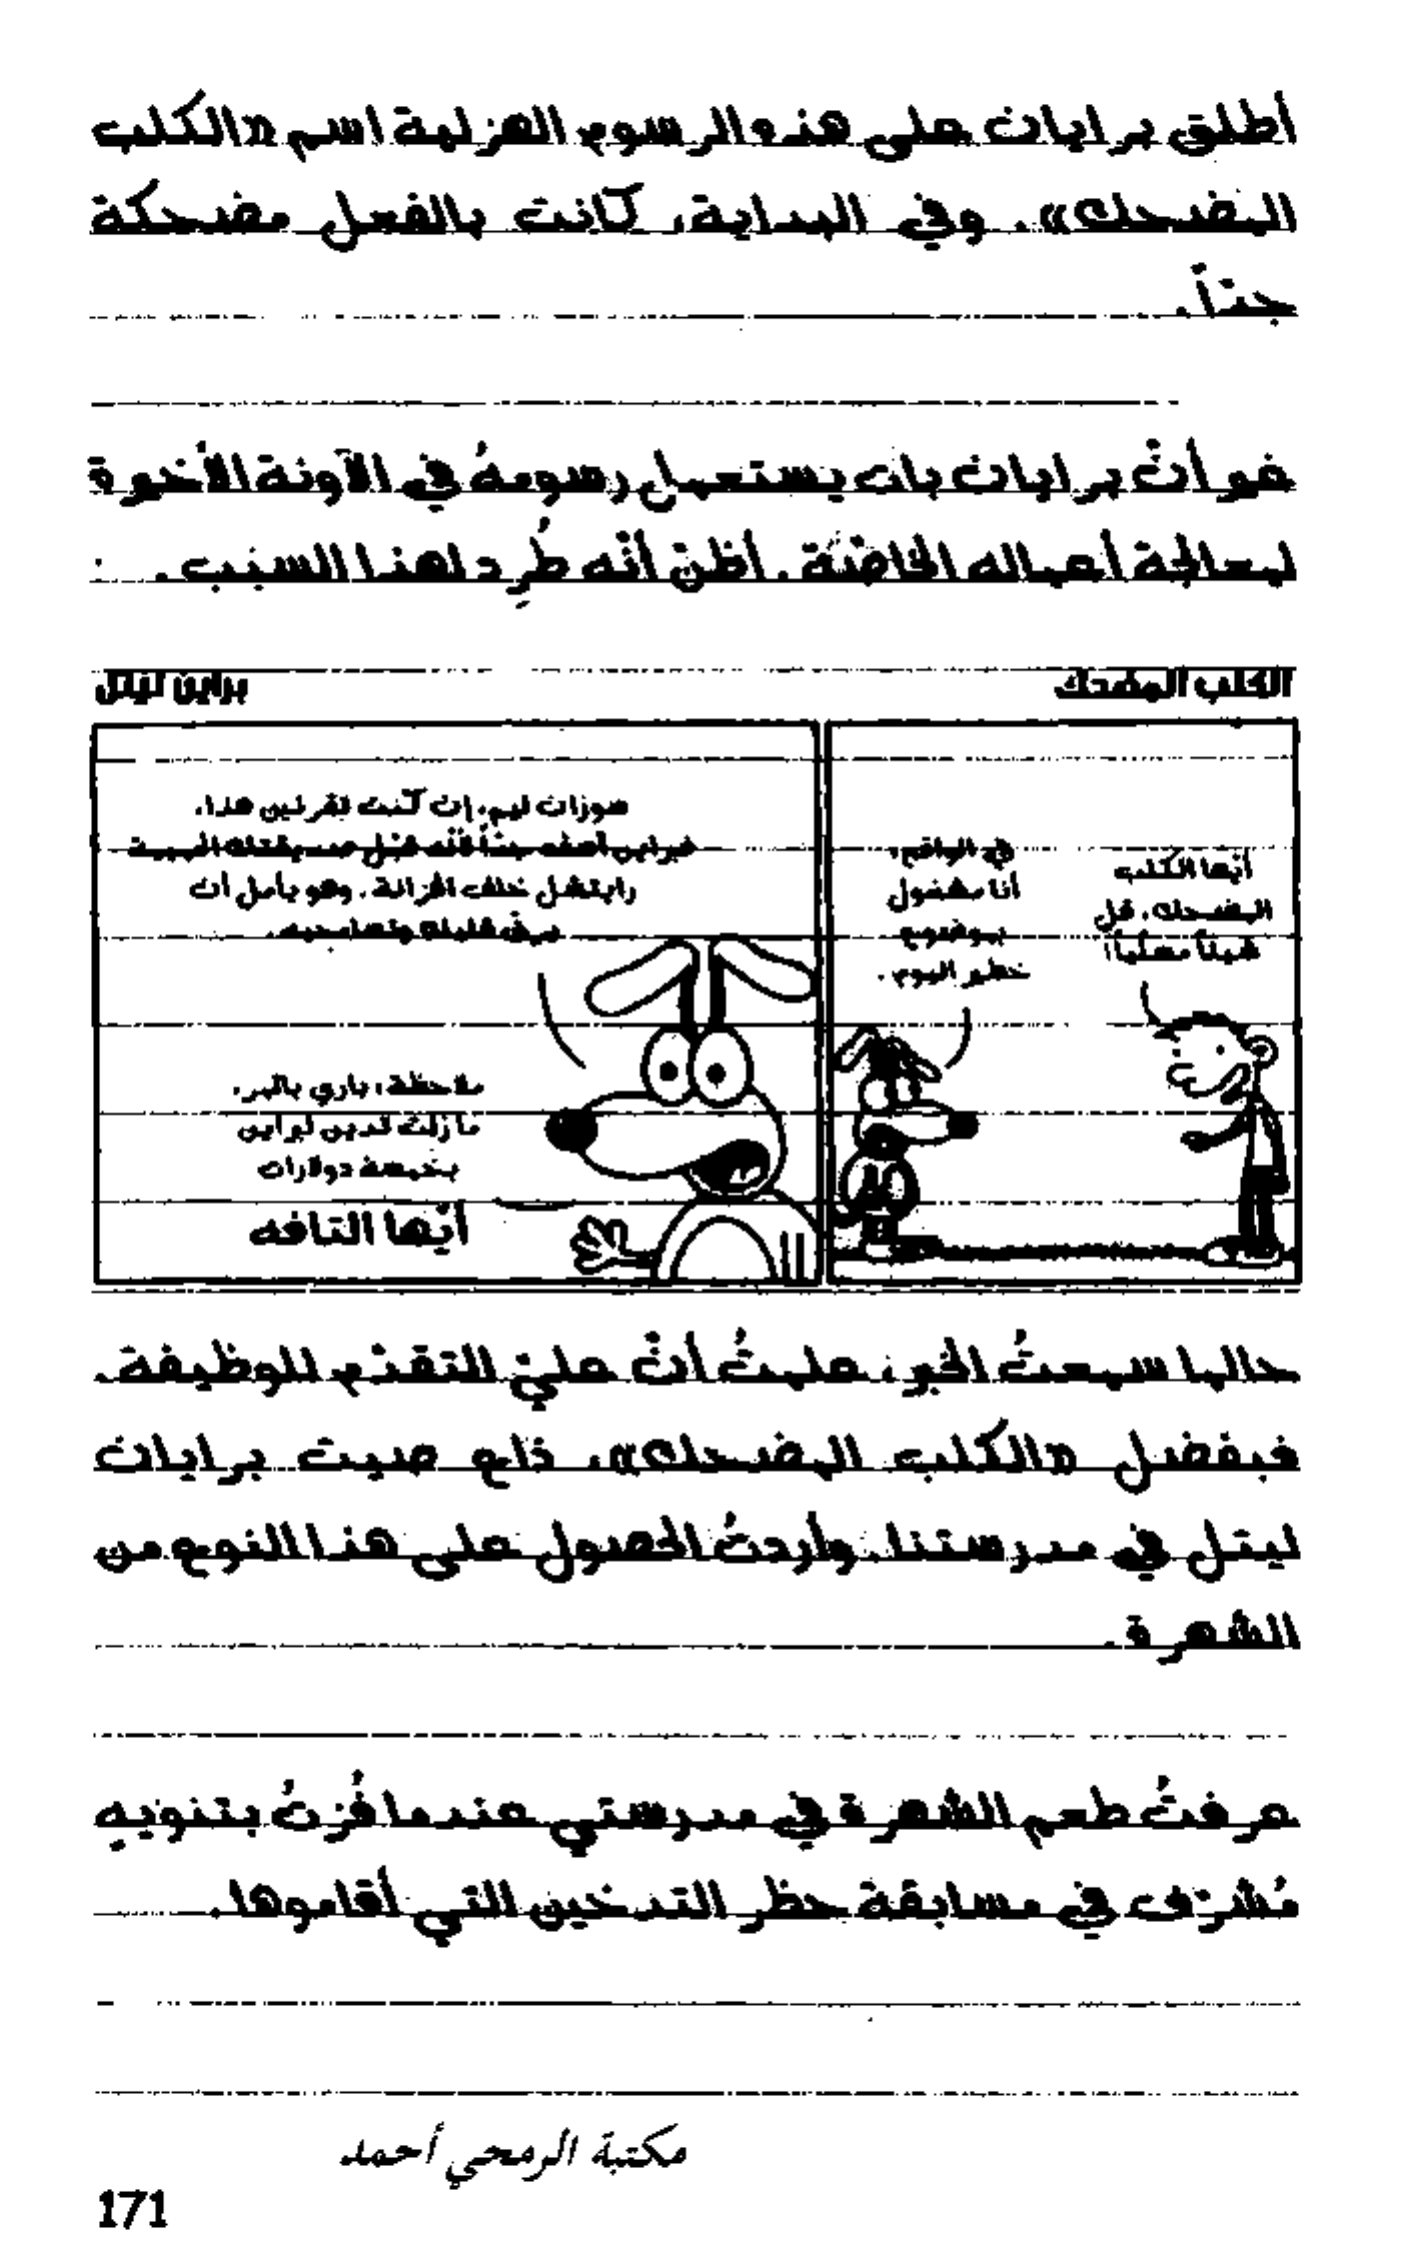 أطلق برايان على هذه الرسوم الهزلية اسم «الكلب
المضحك». وفي البداية، كانت بالفعل مضحكة
جدّاً.
غير أنّ برايان بات يستعمل رسومهُ في الآونة الأخيرة
لمعالجة أعماله الخاصّة. أظنّ أنّه طُرِد لهذا السبب.
الكلب المضحك
براين ليتل
أيّها الكلب
المضحك، قل
شيئاً مسلّياً!
في الواقع،
أنا مشغول
بموضوع
خطير اليوم.
سوزان ليم، إن كنت تقرئين هذا،
فبراين آسف جدّاً لأنّه قبّل صديقتك
خلف الخزانة. وهو يأمل أن
ملاحظة: باري بالمر،
ما زلت تدين لبراين
بخمسة دولارات
أيّها التافه
حالما سمعتُ الخبر، علمتُ أنّ عليّ التقدّم للوظيفة.
فبفضل «الكلب المضحك»، ذاع صيت برايان
ليتل في مدرستنا. وأردتُ الحصول على هذا النوع من
الشهرة.
عرفتُ طعم الشهرة في مدرستي عندما فُزتُ بتنويهٍ
مُشرّف في مسابقة حظر التدخين التي أقاموها.
مكتبة الرمحي أحمد
171